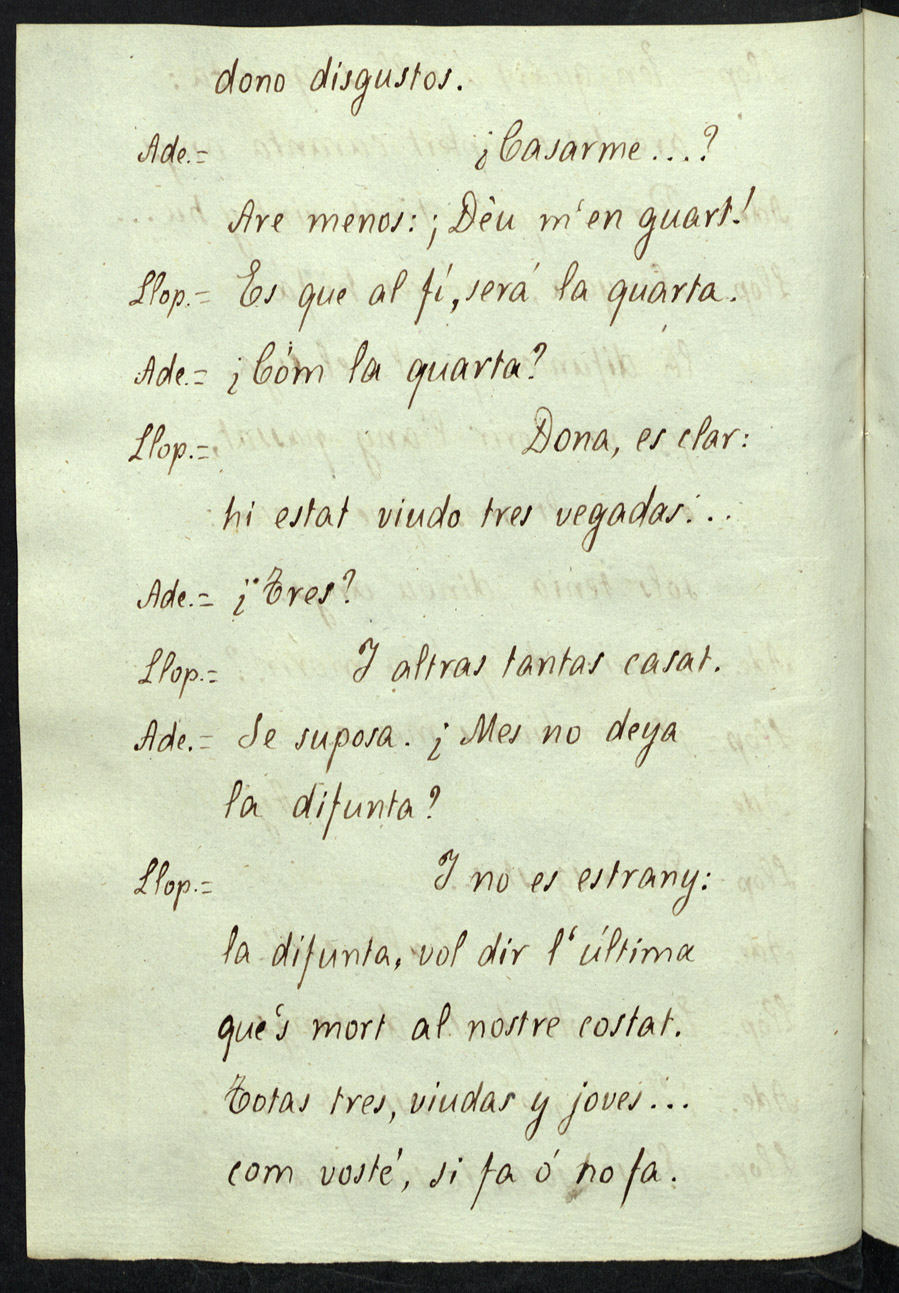 dono disgustos.
Ade.= ¡Casarme...?
Are menos: ¡Dèu m'en guart!
Llop.= Es que al fí, será la quarta.
Ade.= ¡Cóm la quarta?
Llop.= Dona, es clar:
hi estat viudo tres vegadas...
Ade.= ¡Tres?
Llop.= Y altras tantas casat.
Ade.= Se suposa. ¡Mes no deya
la difunta?
Llop.= Y no es estrany:
la difunta, vol dir l'última
que's mort al nostre costat.
Totas tres, viudas y joves...
com vosté, si fa ó no fa.